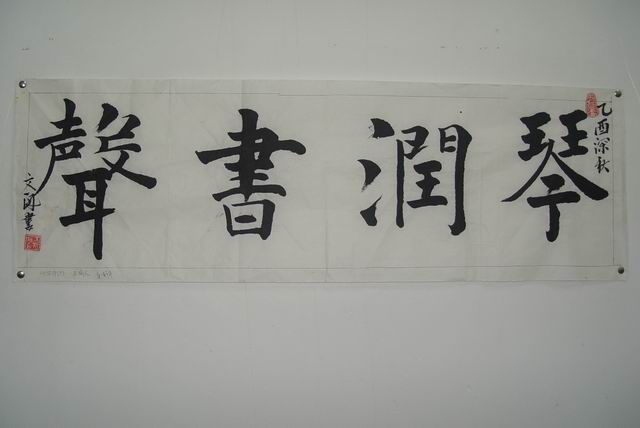 乙酉深秋
琴潤書聲
文
書